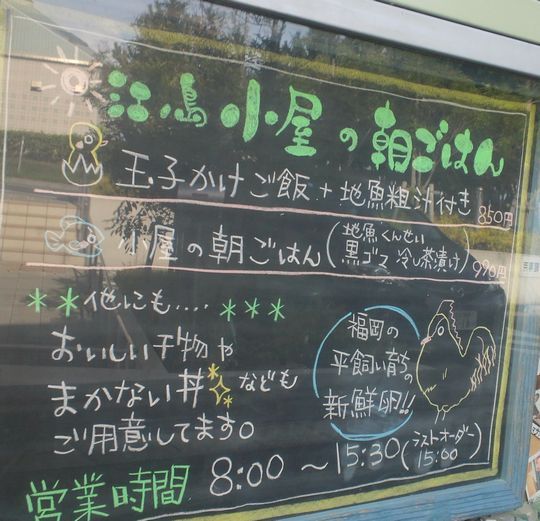 江ノ島小屋の朝ごはん
玉子かけご飯+地魚粗汁付き 850円
小屋の朝ごはん(地魚くんせい
黒ゴマ 冷し茶漬け) 990円
**他にも....***
おいしい干物や
まかない丼なども
ご用意してます。
福岡の
平飼い育ちの
新鮮卵!!
営業時間 8:00~15:30(ラストオーダー
15:00)